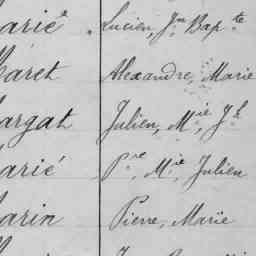 arié Lucien, Jn Bapte
aret Alexandre, Marie
argat Julien, Mie, Jh
arié Pre, Mie, Julien
arin Pierre, Marie